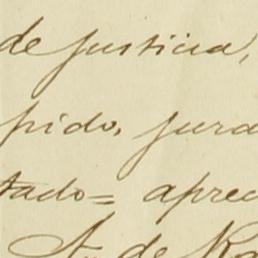 de justicia,
pido, jura
tado= aprec
de